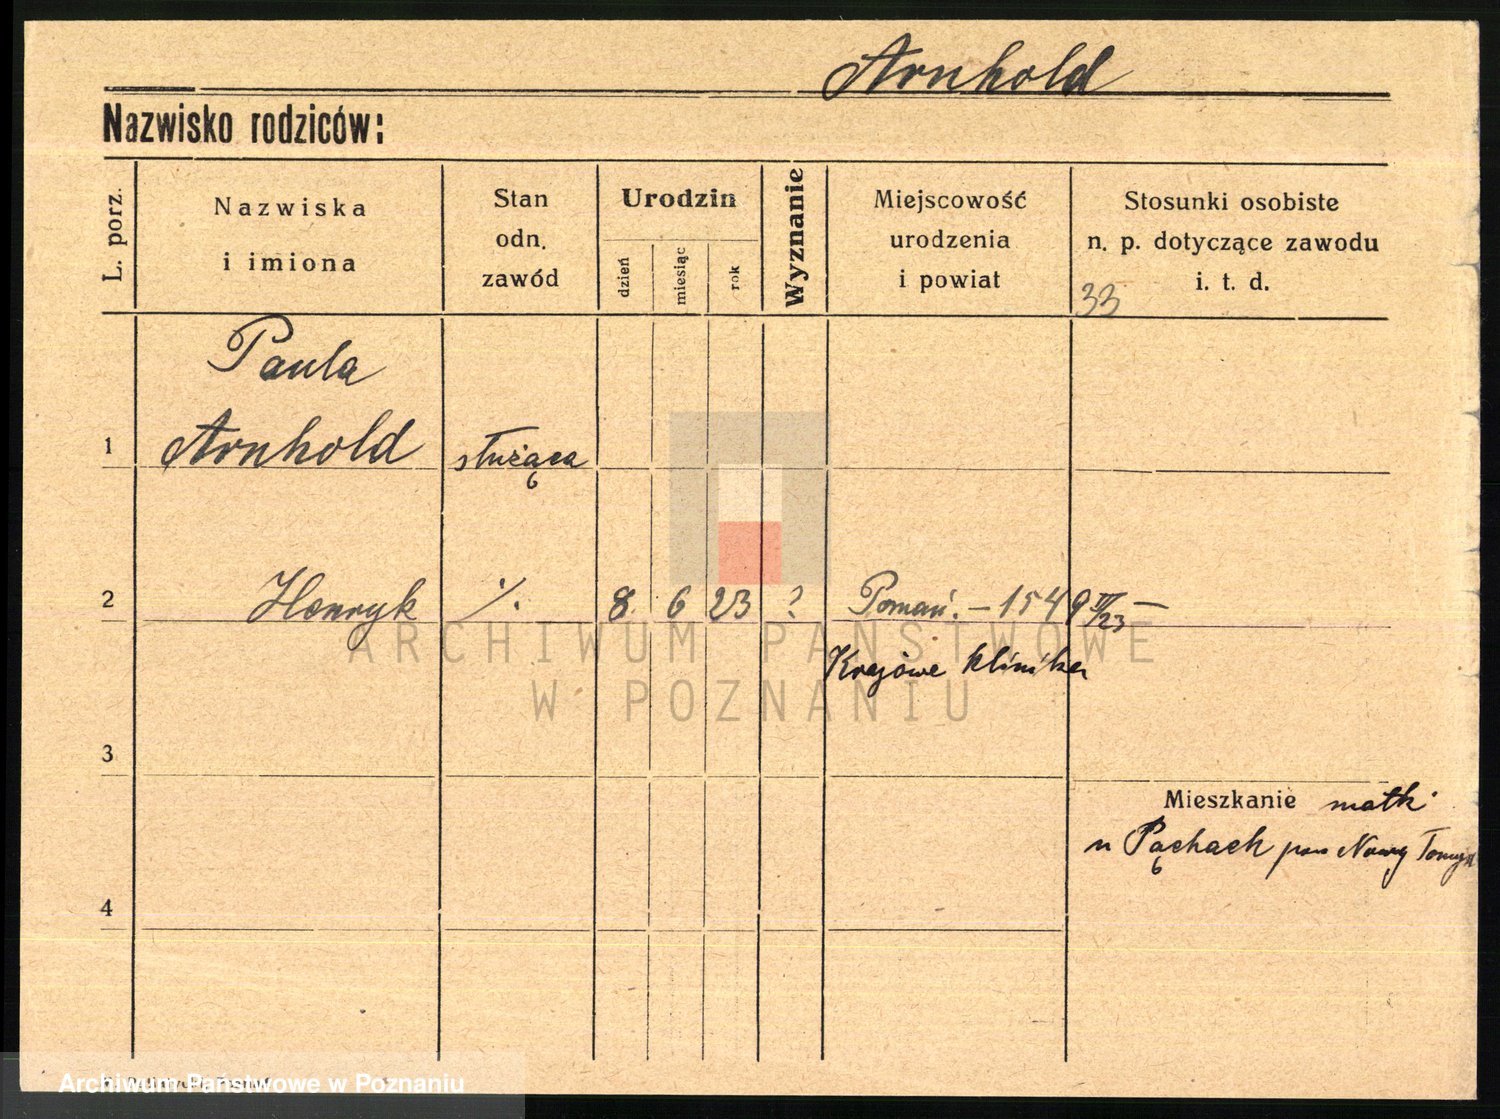 Arnhold
Nazwisko rodziców:
L. porz.
Nazwiska
i imiona
Stan
odn.
zawód
Urodzin
dzień
miesiąc
rok
Wyznanie
Miejscowość
urodzenia
i powiat
Stosunki osobiste
n. p. dotyczące zawodu
i. t. d.
33
Paula
1 Arnhold służąca
2 Henryk ./. 8 6 23 ? Poznań. – 1549 VI/23 –
Krajowe klinika
3
Mieszkanie matki
w Pąchach pow Nowy Tomyśl
4
ARCHIWUM PAŃSTWOWE
W POZNANIU
Archiwum Państwowe w Poznaniu